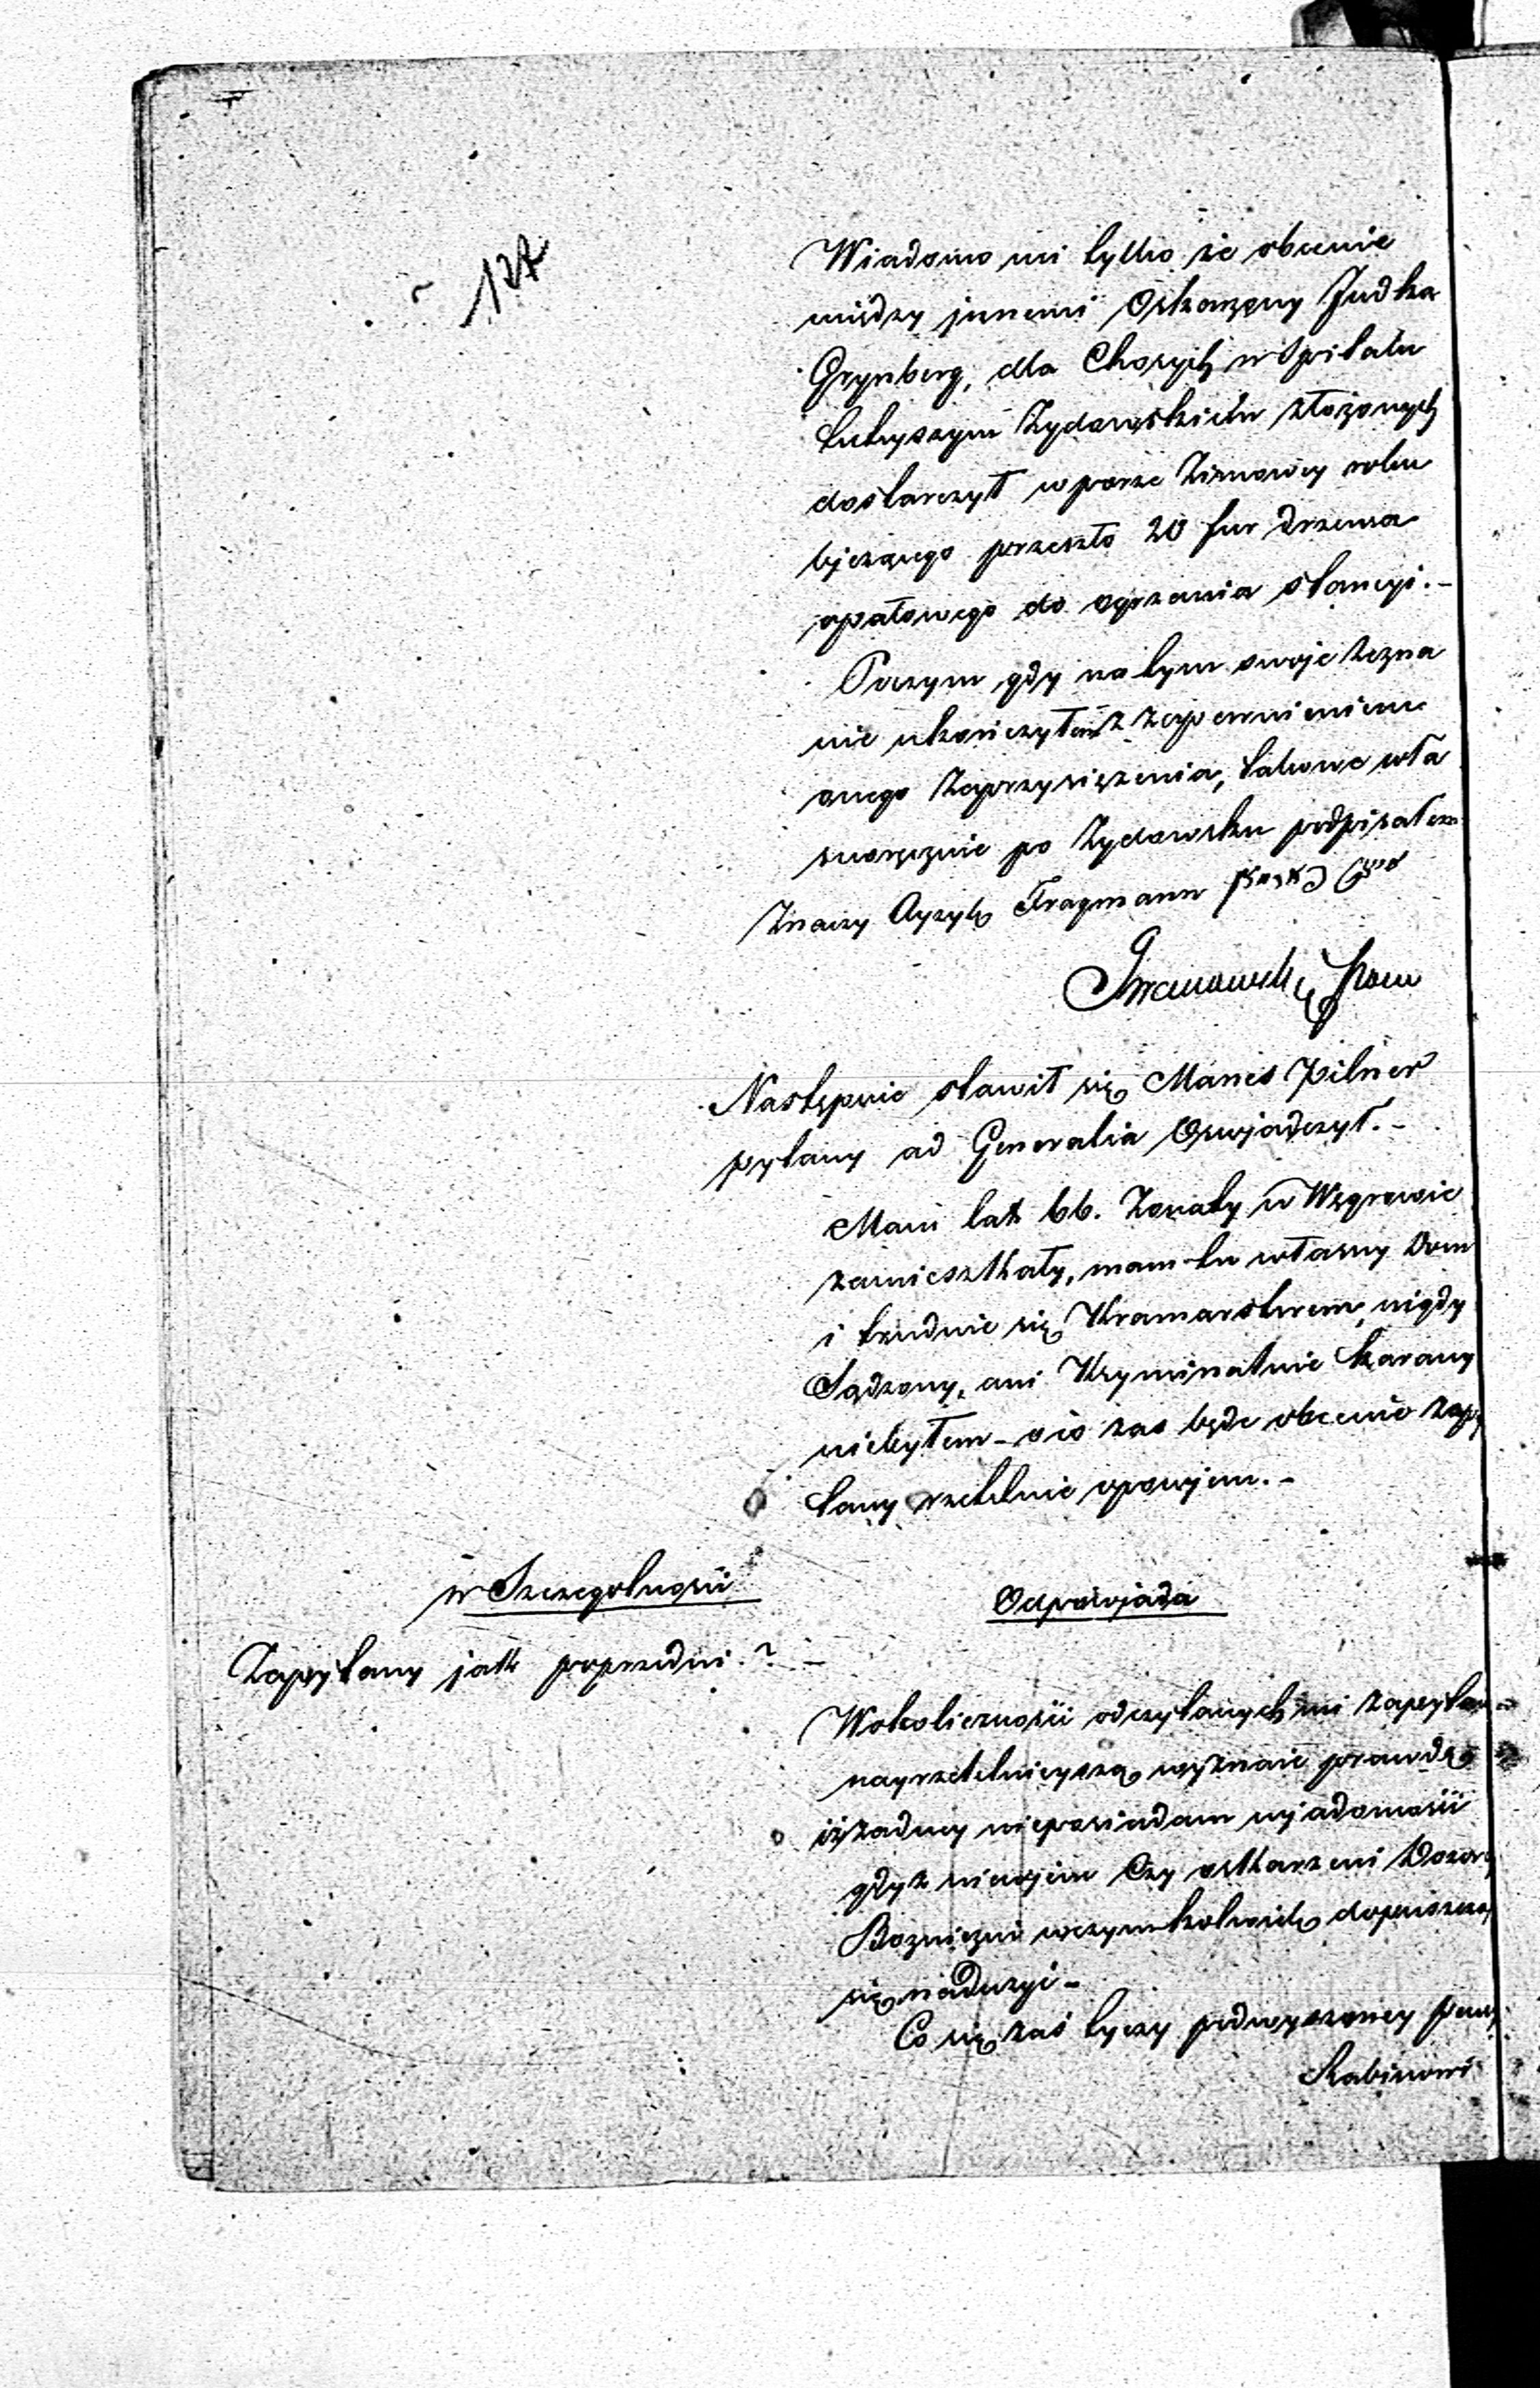 127
Wiadomo mi tylko że obecnie
między jnnemi Oskarżony Judka
Grynberg, dla Chorych w Szpitalu
tutuyszym Żydowskiem złożonych
dostarczył w porze Zimowey roku
bjeżącego przeszło 20 fur drzewa
opałowego do ogrzania stancyi.-
Poczym gdy na tym swoje zezna
nie ukończyłem z zapewnieniem
onego Zaprzysiężenia, takowe wła
snoręcznie po Żydowsku podpisałem
Znaczy Ayzyk Fragmann
Następnie stawił się Manes Pilner
pytany ad Generalia Oswjadczył.-
Mam lat 66. Żonaty w Węgrowie
zamieszkały, mam tu własny Dom
i trudnie się Kramarstwem, nigdy
Sądzony, ani Kryminalnie karany
niebyłem - o co zas będe obecnie zapy
tany rzetelnie opowjem.-
w Szczegolnosci
Odpowjada
Zapytany jak poprzedni.? -
W okolicznosci odczytanych mi zapytan
nayrzetelnieyszą wyznaie prawdę
iż żadney nieposiadam wjadomosci
gdyż niewjem Czy oskarzeni Dozory
Bozniczni w czymkolwiek dopuszczają
się nadużyć -
Co się zaś tyczy podwyższoney pensyi
Rabinowi